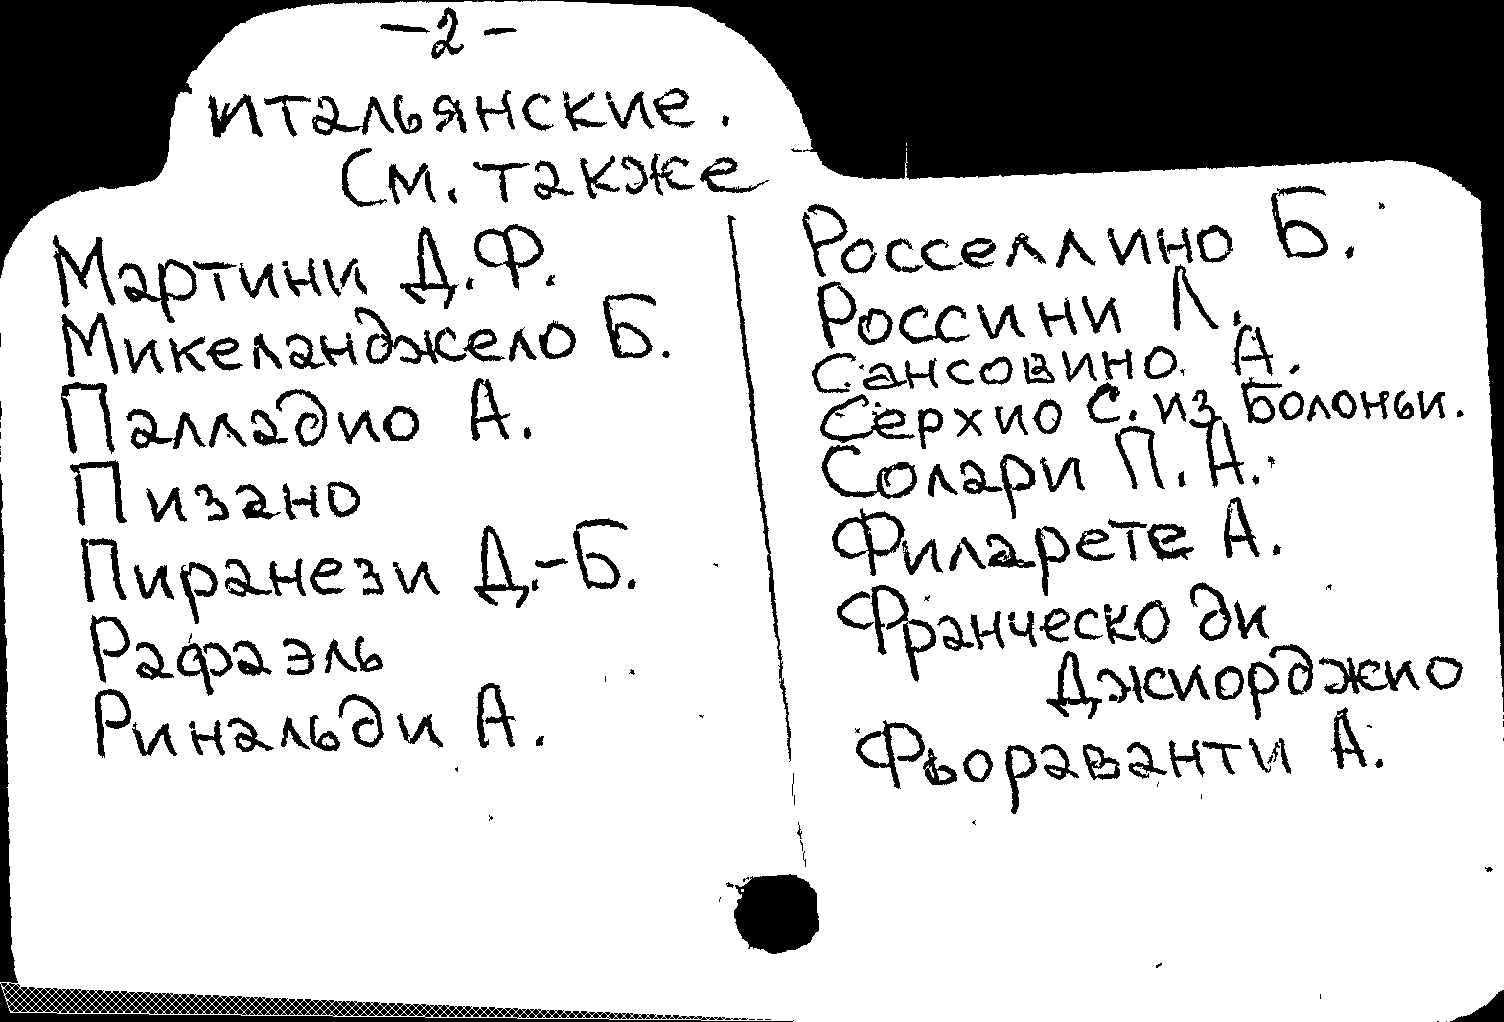 -2-
итальянские.
См. также
Мартини Д.Ф.
Микеланджело Б.
Палладио А.
Пизано
Пиранези Д.-Б.
Рафаэль
Ринальди А.
Росселлино Б.
Россини Л.
Сансовино А.
Серхио С. из Болоньи.
Солари П. А.
Филарете А.
Франческо ди
Джиорджио
Фьораванти А.